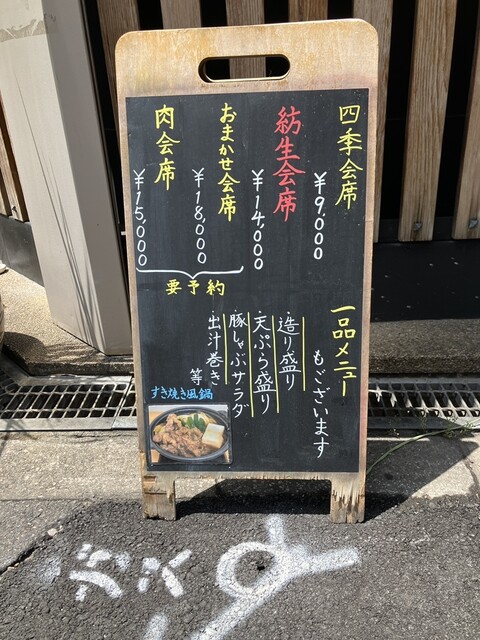 四季会席
￥9.000
紡生会席
￥14,000
おまかせ会席
￥18,000
肉会席
￥15,000
要予約
一品メニュー
もございます
・造り盛り
・天ぷら盛り
・豚しゃぶサラダ
・出汁巻き
等
すき焼き風鍋
ガス